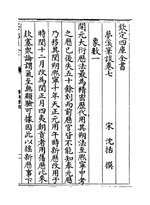 欽定四庫全書
夢溪筆談卷七
宋 沈括 撰
象數一
開元大衍歷法最為精密歷代用其朔法至熙寧中考
之歷已後天五十餘刻而前世歷官皆不能知奉元歷
乃移其閏朔熙寧十年天正元用午時新歷改用子
時閏十二月改為閏正月四夷朝貢者用舊歷比來
款塞衆論謂氣至無顯驗可據因此以摇新歷事下